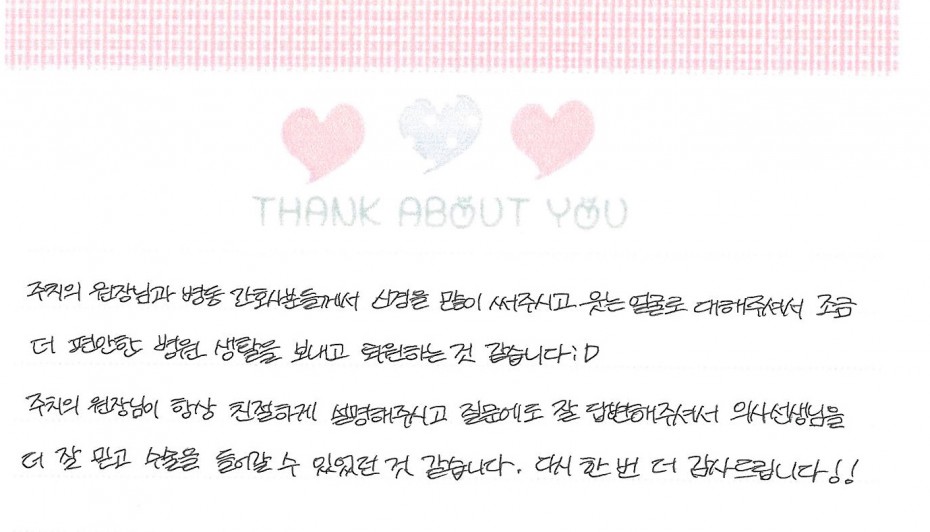 THANK ABOUT YOU
주치의 원장님과 병동 간호사분들께서 신경을 많이 써주시고 웃는 얼굴로 대해주셔서 조금
더 편안한 병원 생활을 보내고 퇴원하는 것 같습니다:D
주치의 원장님이 항상 친절하게 설명해주시고 질문에도 잘 답변해주셔서 의사선생님을
더 잘 믿고 수술을 들어갈 수 있었던 것 같습니다. 다시 한 번 더 감사드립니다!!